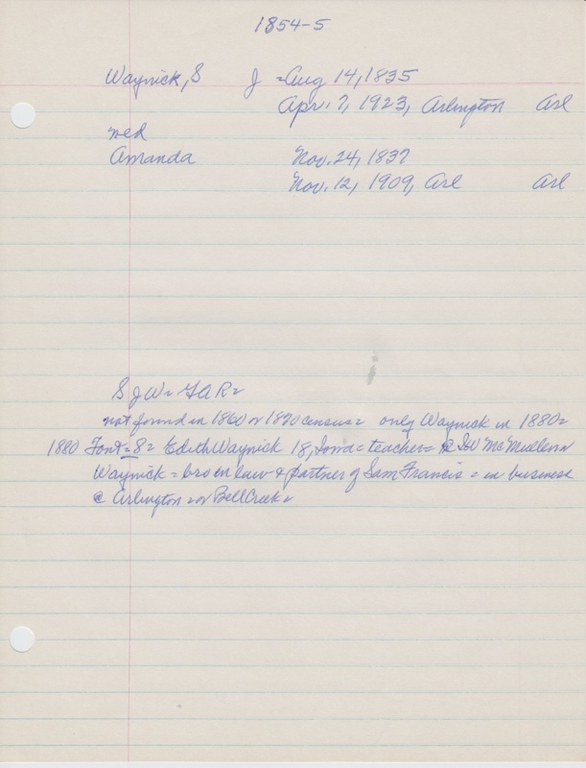 1854-5
Waynick, S J = Aug 14, 1835
Apr. 7, 1923, Arlington Arl
wed
Amanda Nov. 24, 1837
Nov. 12, 1909, Arl Arl
S J W = GAR =
not found in 1860 or 1870 census = only Waynick in 1880 =
1880 Font = 8 = Edith Waynick 18, Iowa = teacher = @ McMullen
Waynick = bro in law & partner of Sam Francis = in business
@ Arlington = or Bell Creek =